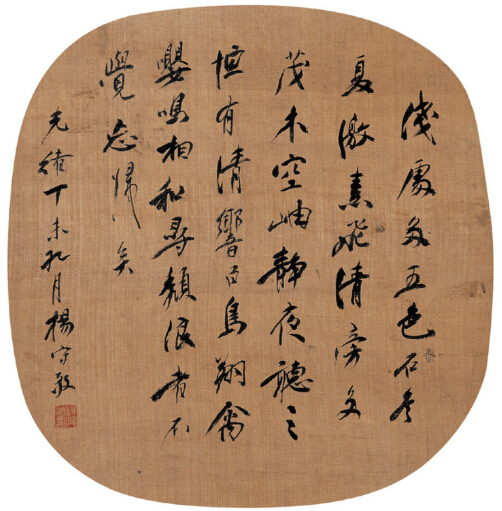 淺處多五色石冬
夏激素飛清傍多
茂木空岫靜夜聽之
恒有清響百鳥翔禽
嚶鳴相和尋頹浪者不
覺忘歸矣
光緒丁未九月楊守敬